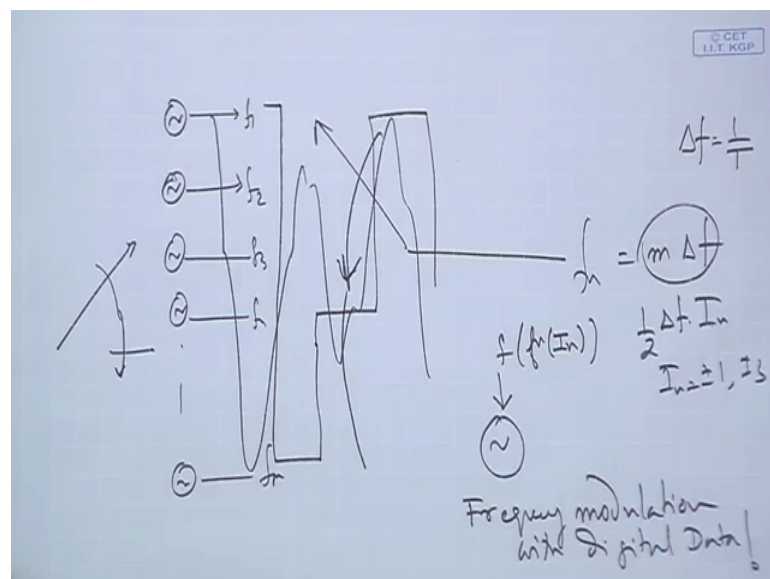 © CET
I.I.T. KGP
f1
f2
f3
fn
fn
Δf = 1/T
fn = m Δf
1/2 Δf. In
In = ±1, ±3
f(fn(In))
Frequency modulation
with Digital Data!